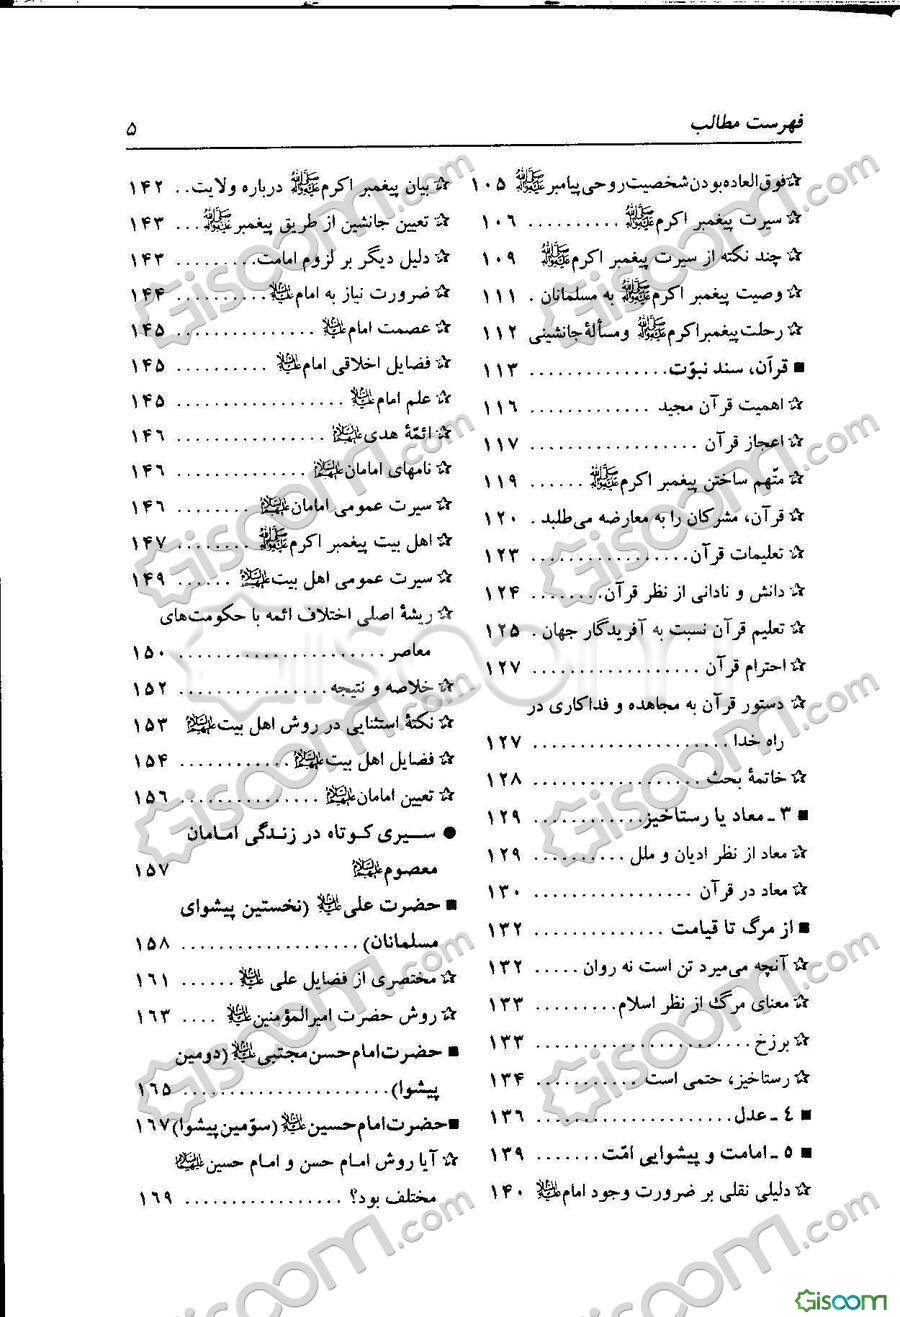 فهرست مطالب ۵
☆ فوق‌العاده بودن شخصیت روحی پیامبر ﷺ ۱۰۵
☆ سیرت پیغمبر اکرم ﷺ .......... ۱۰۶
☆ چند نکته از سیرت پیغمبر اکرم ﷺ ۱۰۹
☆ وصیت پیغمبر اکرم ﷺ به مسلمانان . ۱۱۱
☆ رحلت پیغمبر اکرم ﷺ ومسألهٔ جانشینی ۱۱۲
■ قرآن، سند نبوّت ............... ۱۱۳
☆ اهمیت قرآن مجید ............. ۱۱۶
☆ اعجاز قرآن .................. ۱۱۷
☆ متّهم ساختن پیغمبر اکرم ﷺ ...... ۱۱۹
☆ قرآن، مشرکان را به معارضه می‌طلبد . ۱۲۰
☆ تعلیمات قرآن ................. ۱۲۳
☆ دانش و نادانی از نظر قرآن ......... ۱۲۴
☆ تعلیم قرآن نسبت به آفریدگار جهان . ۱۲۵
☆ احترام قرآن .................. ۱۲۷
☆ دستور قرآن به مجاهده و فداکاری در
راه خدا ..................... ۱۲۷
☆ خاتمهٔ بحث .................. ۱۲۸
■ ۳ ـ معاد یا رستاخیز ............. ۱۲۹
☆ معاد از نظر ادیان و ملل .......... ۱۲۹
☆ معاد در قرآن ................. ۱۳۰
■ از مرگ تا قیامت .............. ۱۳۲
☆ آنچه می‌میرد تن است نه روان ..... ۱۳۲
☆ معنای مرگ از نظر اسلام ......... ۱۳۳
☆ برزخ ....................... ۱۳۳
☆ رستاخیز، حتمی است ........... ۱۳۴
■ ۴ ـ عدل ..................... ۱۳۶
■ ۵ ـ امامت و پیشوایی امّت ....... ۱۳۹
☆ دلیلی نقلی بر ضرورت وجود امام علیه‌السلام ۱۴۰
☆ بیان پیغمبر اکرم ﷺ درباره ولایت .. ۱۴۲
☆ تعیین جانشین از طریق پیغمبر ﷺ ... ۱۴۳
☆ دلیل دیگر بر لزوم امامت ......... ۱۴۳
☆ ضرورت نیاز به امام علیه‌السلام .......... ۱۴۴
☆ عصمت امام علیه‌السلام ............... ۱۴۵
☆ فضایل اخلاقی امام علیه‌السلام .......... ۱۴۵
☆ علم امام علیه‌السلام .................. ۱۴۵
☆ ائمّهٔ هدی علیهم‌السلام ................ ۱۴۶
☆ نامهای امامان علیهم‌السلام .............. ۱۴۶
☆ سیرت عمومی امامان علیهم‌السلام ........ ۱۴۶
☆ اهل بیت پیغمبر اکرم ﷺ ........ ۱۴۷
☆ سیرت عمومی اهل بیت علیهم‌السلام ...... ۱۴۹
☆ ریشهٔ اصلی اختلاف ائمه با حکومت‌های
معاصر ...................... ۱۵۰
☆ خلاصه و نتیجه ................ ۱۵۲
☆ نکتهٔ استثنایی در روش اهل بیت علیهم‌السلام ۱۵۳
☆ فضایل اهل بیت علیهم‌السلام ............ ۱۵۴
☆ تعیین امامان علیهم‌السلام ............... ۱۵۶
● سیری کوتاه در زندگی امامان
معصوم علیهم‌السلام ۱۵۷
■ حضرت علی علیه‌السلام (نخستین پیشوای
مسلمانان) ................... ۱۵۸
☆ مختصری از فضایل علی علیه‌السلام ...... ۱۶۱
☆ روش حضرت امیرالمؤمنین علیه‌السلام .... ۱۶۳
■ حضرت امام حسن مجتبی علیه‌السلام (دومین
پیشوا) ...................... ۱۶۵
■ حضرت امام حسین علیه‌السلام (سوّمین پیشوا) ۱۶۷
☆ آیا روش امام حسن و امام حسین علیهم‌السلام
مختلف بود؟ ................. ۱۶۹
Gisoom